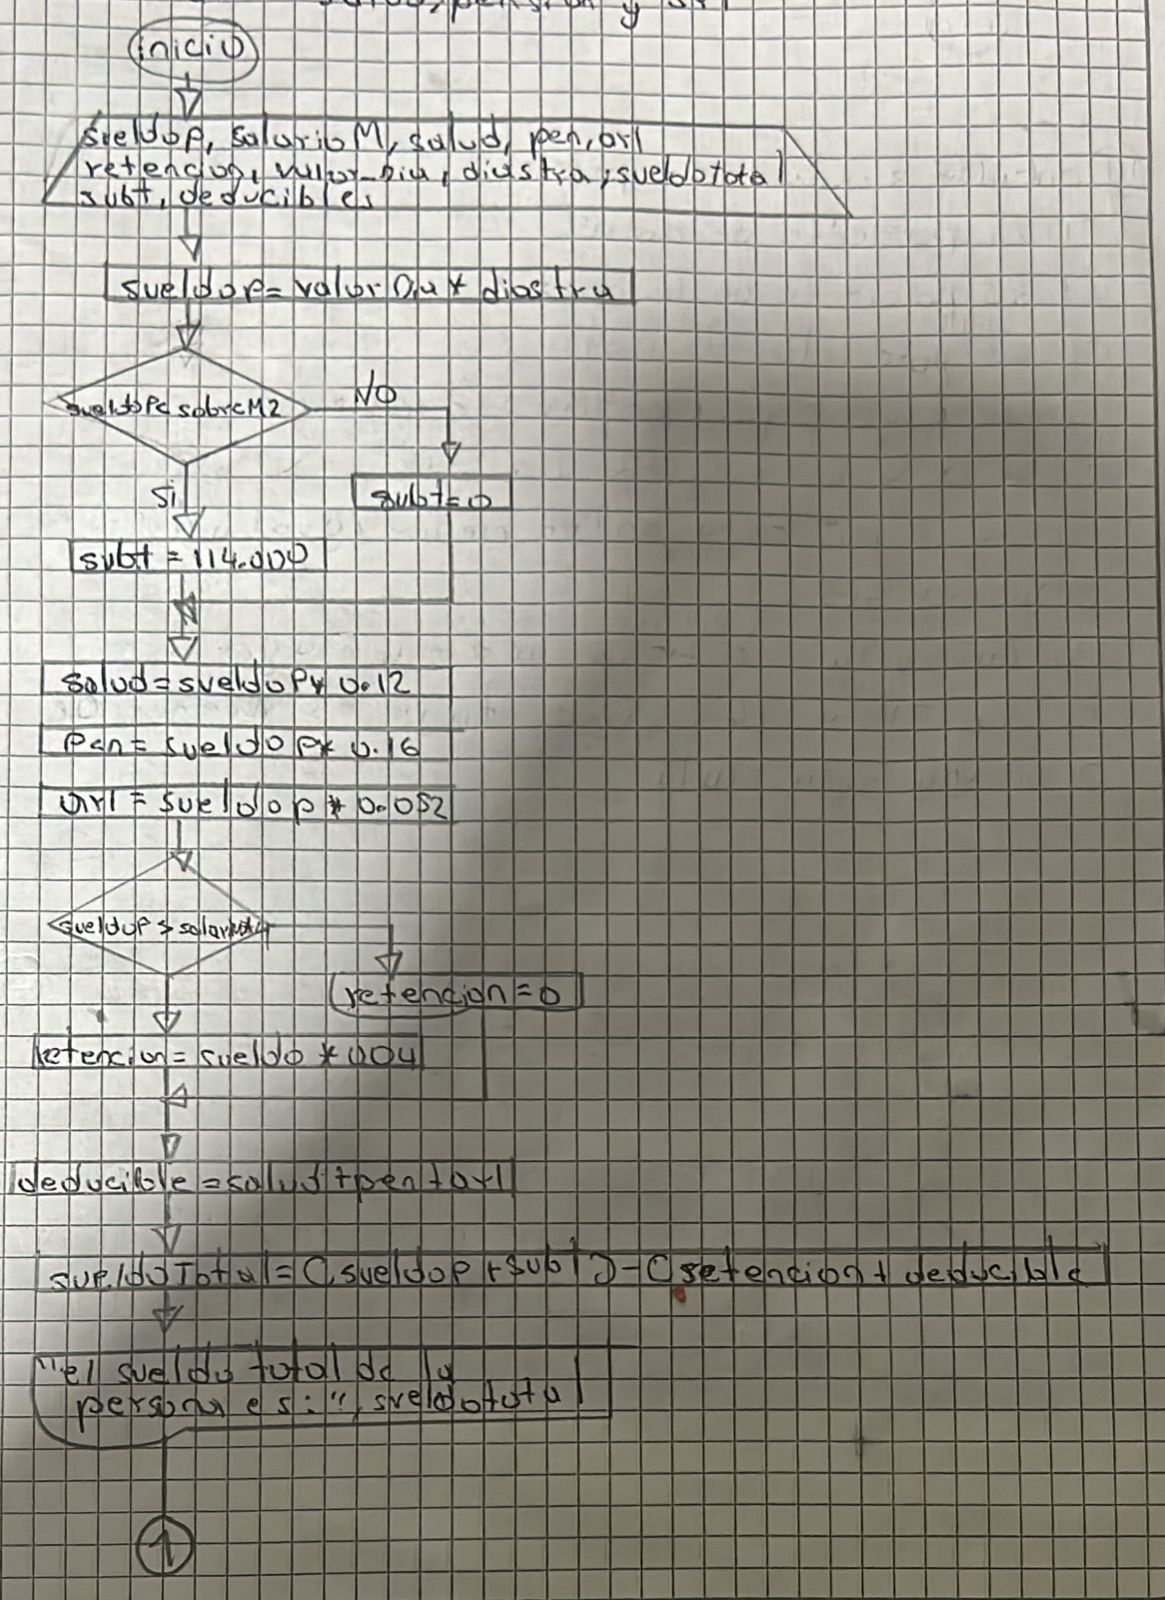 y
inicio
sueldoP, salarioM, salud, pen, arl
retencion, valor_Dia, diastra, sueldototal
subt, deducibles
sueldoP= valor Dia * diastra
NO
Si
subt=0
subt = 114.000
salud=sueldoP* 0.12
Pen= sueldo P* 0.16
arl = sueldo p * 0.052
retencion=0
retencion= sueldo * 0.04
deducible =salud+pen+arl
sueldoTotal= (sueldop+subt)-(retencion+ deducible
"el sueldo total de la
persona es:", sueldototal
1